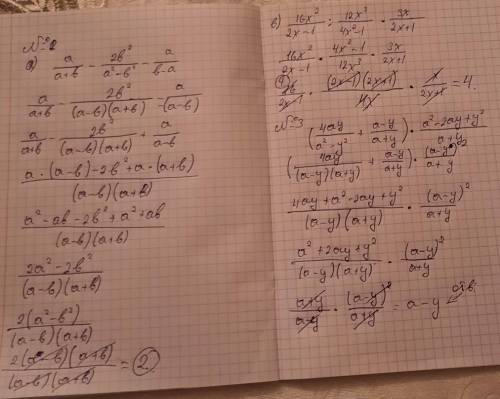 №2
а) a/(a+b) - 2b²/(a²-b²) - a/(b-a)
a/(a+b) - 2b²/((a-b)(a+b)) - a/(-(a-b))
a/(a+b) - 2b²/((a-b)(a+b)) + a/(a-b)
(a·(a-b)-2b²+a·(a+b))/((a-b)(a+b))
(a²-ab-2b²+a²+ab)/((a-b)(a+b))
(2a²-2b²)/((a-b)(a+b))
2(a²-b²)/((a-b)(a+b))
2(a-b)(a+b)/((a-b)(a+b)) = 2.
в) 16x²/(2x-1) : 12x³/(4x²-1) · 3x/(2x+1)
16x²/(2x-1) · (4x²-1)/12x³ · 3x/(2x+1)
/(2x-1) · (2x-1)(2x+1)/ · x/(2x+1) = 4.
№3 (4ay/(a²-y²) + (a-y)/(a+y)) · (a²-2ay+y²)/(a+y)
(4ay/((a-y)(a+y)) + (a-y)/(a+y)) · (a-y)²/(a+y)
(4ay+a²-2ay+y²)/((a-y)(a+y)) · (a-y)²/(a+y)
(a²+2ay+y²)/((a-y)(a+y)) · (a-y)²/(a+y)
(a+y)/(a-y) · (a-y)²/(a+y) = a-y отв.